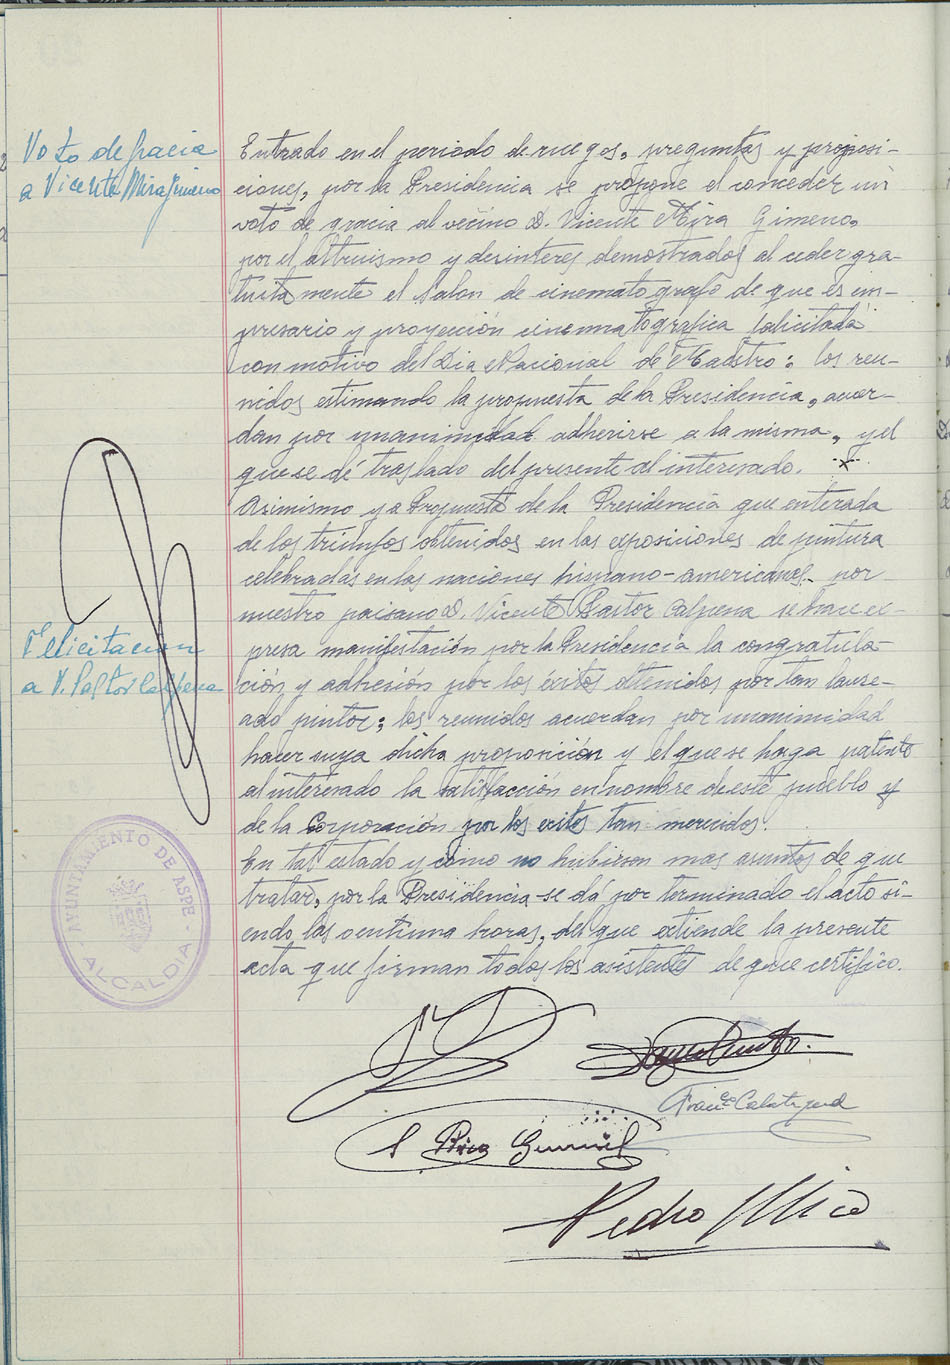 Voto de gracia
a Vicente Mira Gimeno
Entrado en el periodo de ruegos, preguntas y proposi-
ciones, por la Presidencia se propone el conceder un
voto de gracia al vecino D. Vicente Mira Gimeno,
por el altruismo y desinteres demostrados al ceder gra-
tuitamente el Salon de cinematografo de que es em-
presario y proyección cinematografica solicitada
con motivo del Dia Nacional de Maestro: los reu-
nidos estimando la propuesta de la Presidencia, acuer-
dan por unanimidad adherirse a la misma, y el
que se dé traslado del presente al interesado.
Asimismo y a Propuesta de la Presidencia que enterada
de los triunfos obtenidos en las exposiciones de pintura
celebradas en las naciones hispano-americanas por
nuestro paisano D. Vicente Pastor Calpena se hace ex-
presa manifestación por la Presidencia la congratula-
ción y adhesión por los éxitos obtenidos por tan laure-
ado pintor; los reunidos acuerdan por unanimidad
hacer suya dicha proposición y el que se haga patente
al interesado la satisfacción en nombre de este pueblo y
de la Corporación por los exitos tan merecidos.
Felicitacion
a V. Pastor Calpena
En tal estado y como no hubiesen mas asuntos de que
tratar, por la Presidencia se dá por terminado el acto si-
endo las veintiuna horas, del que extiende la presente
acta que firman todos los asistentes de que certifico.
AYUNTAMIENTO DE ASPE
- ALCALDIA -
Franco Calatayud
Pedro Mico